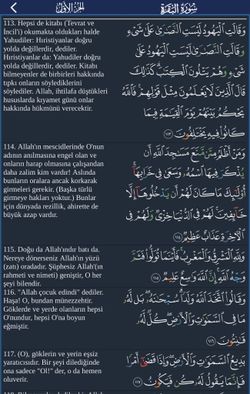 الجزء الأول
سورة البقرة
113. Hepsi de kitabı (Tevrat ve
İncil'i) okumakta oldukları halde
Yahudiler: Hıristiyanlar doğru
yolda değillerdir, dediler.
Hıristiyanlar da: Yahudiler doğru
yolda değillerdir, dediler. Kitabı
bilmeyenler de birbirleri hakkında
tıpkı onların söylediklerini
söylediler. Allah, ihtilafa düştükleri
hususlarda kıyamet günü onlar
hakkında hükmünü verecektir.
وَقَالَتِ الْيَهُودُ لَيْسَتِ النَّصَارَىٰ عَلَىٰ شَيْءٍ
وَقَالَتِ النَّصَارَىٰ لَيْسَتِ الْيَهُودُ عَلَىٰ
شَيْءٍ وَهُمْ يَتْلُونَ الْكِتَابَ كَذَٰلِكَ
قَالَ الَّذِينَ لَا يَعْلَمُونَ مِثْلَ قَوْلِهِمْ فَاللَّهُ
يَحْكُمُ بَيْنَهُمْ يَوْمَ الْقِيَامَةِ فِيمَا
كَانُوا فِيهِ يَخْتَلِفُونَ ١١٣
114. Allah'ın mescidlerinde O'nun
adının anılmasına engel olan ve
onların harap olmasına çalışandan
daha zalim kim vardır! Aslında
bunların oralara ancak korkarak
girmeleri gerekir. (Başka türlü
girmeye hakları yoktur.) Bunlar
için dünyada rezillik, ahirette de
büyük azap vardır.
وَمَنْ أَظْلَمُ مِمَّنْ مَنَعَ مَسَاجِدَ اللَّهِ أَنْ
يُذْكَرَ فِيهَا اسْمُهُ وَسَعَىٰ فِي خَرَابِهَا
أُولَٰئِكَ مَا كَانَ لَهُمْ أَنْ يَدْخُلُوهَا إِلَّا
خَائِفِينَ لَهُمْ فِي الدُّنْيَا خِزْيٌ وَلَهُمْ فِي
الْآخِرَةِ عَذَابٌ عَظِيمٌ ١١٤
115. Doğu da Allah'ındır batı da.
Nereye dönerseniz Allah'ın yüzü
(zatı) oradadır. Şüphesiz Allah'(ın
rahmeti ve nimeti) geniştir, O her
şeyi bilendir.
وَلِلَّهِ الْمَشْرِقُ وَالْمَغْرِبُ فَأَيْنَمَا تُوَلُّوا فَثَمَّ
وَجْهُ اللَّهِ إِنَّ اللَّهَ وَاسِعٌ عَلِيمٌ ١١٥
116. "Allah çocuk edindi" dediler.
Haşa! O, bundan münezzehtir.
Göklerde ve yerde olanların hepsi
O'nundur, hepsi O'na boyun
eğmiştir.
وَقَالُوا اتَّخَذَ اللَّهُ وَلَدًا سُبْحَانَهُ بَلْ لَهُ
مَا فِي السَّمَاوَاتِ وَالْأَرْضِ كُلٌّ لَهُ
قَانِتُونَ ١١٦
117. (O), göklerin ve yerin eşsiz
yaratıcısıdır. Bir şeyi dilediğinde
ona sadece "Ol!" der, o da hemen
oluverir.
بَدِيعُ السَّمَاوَاتِ وَالْأَرْضِ وَإِذَا قَضَىٰ أَمْرًا
فَإِنَّمَا يَقُولُ لَهُ كُنْ فَيَكُونُ ١١٧